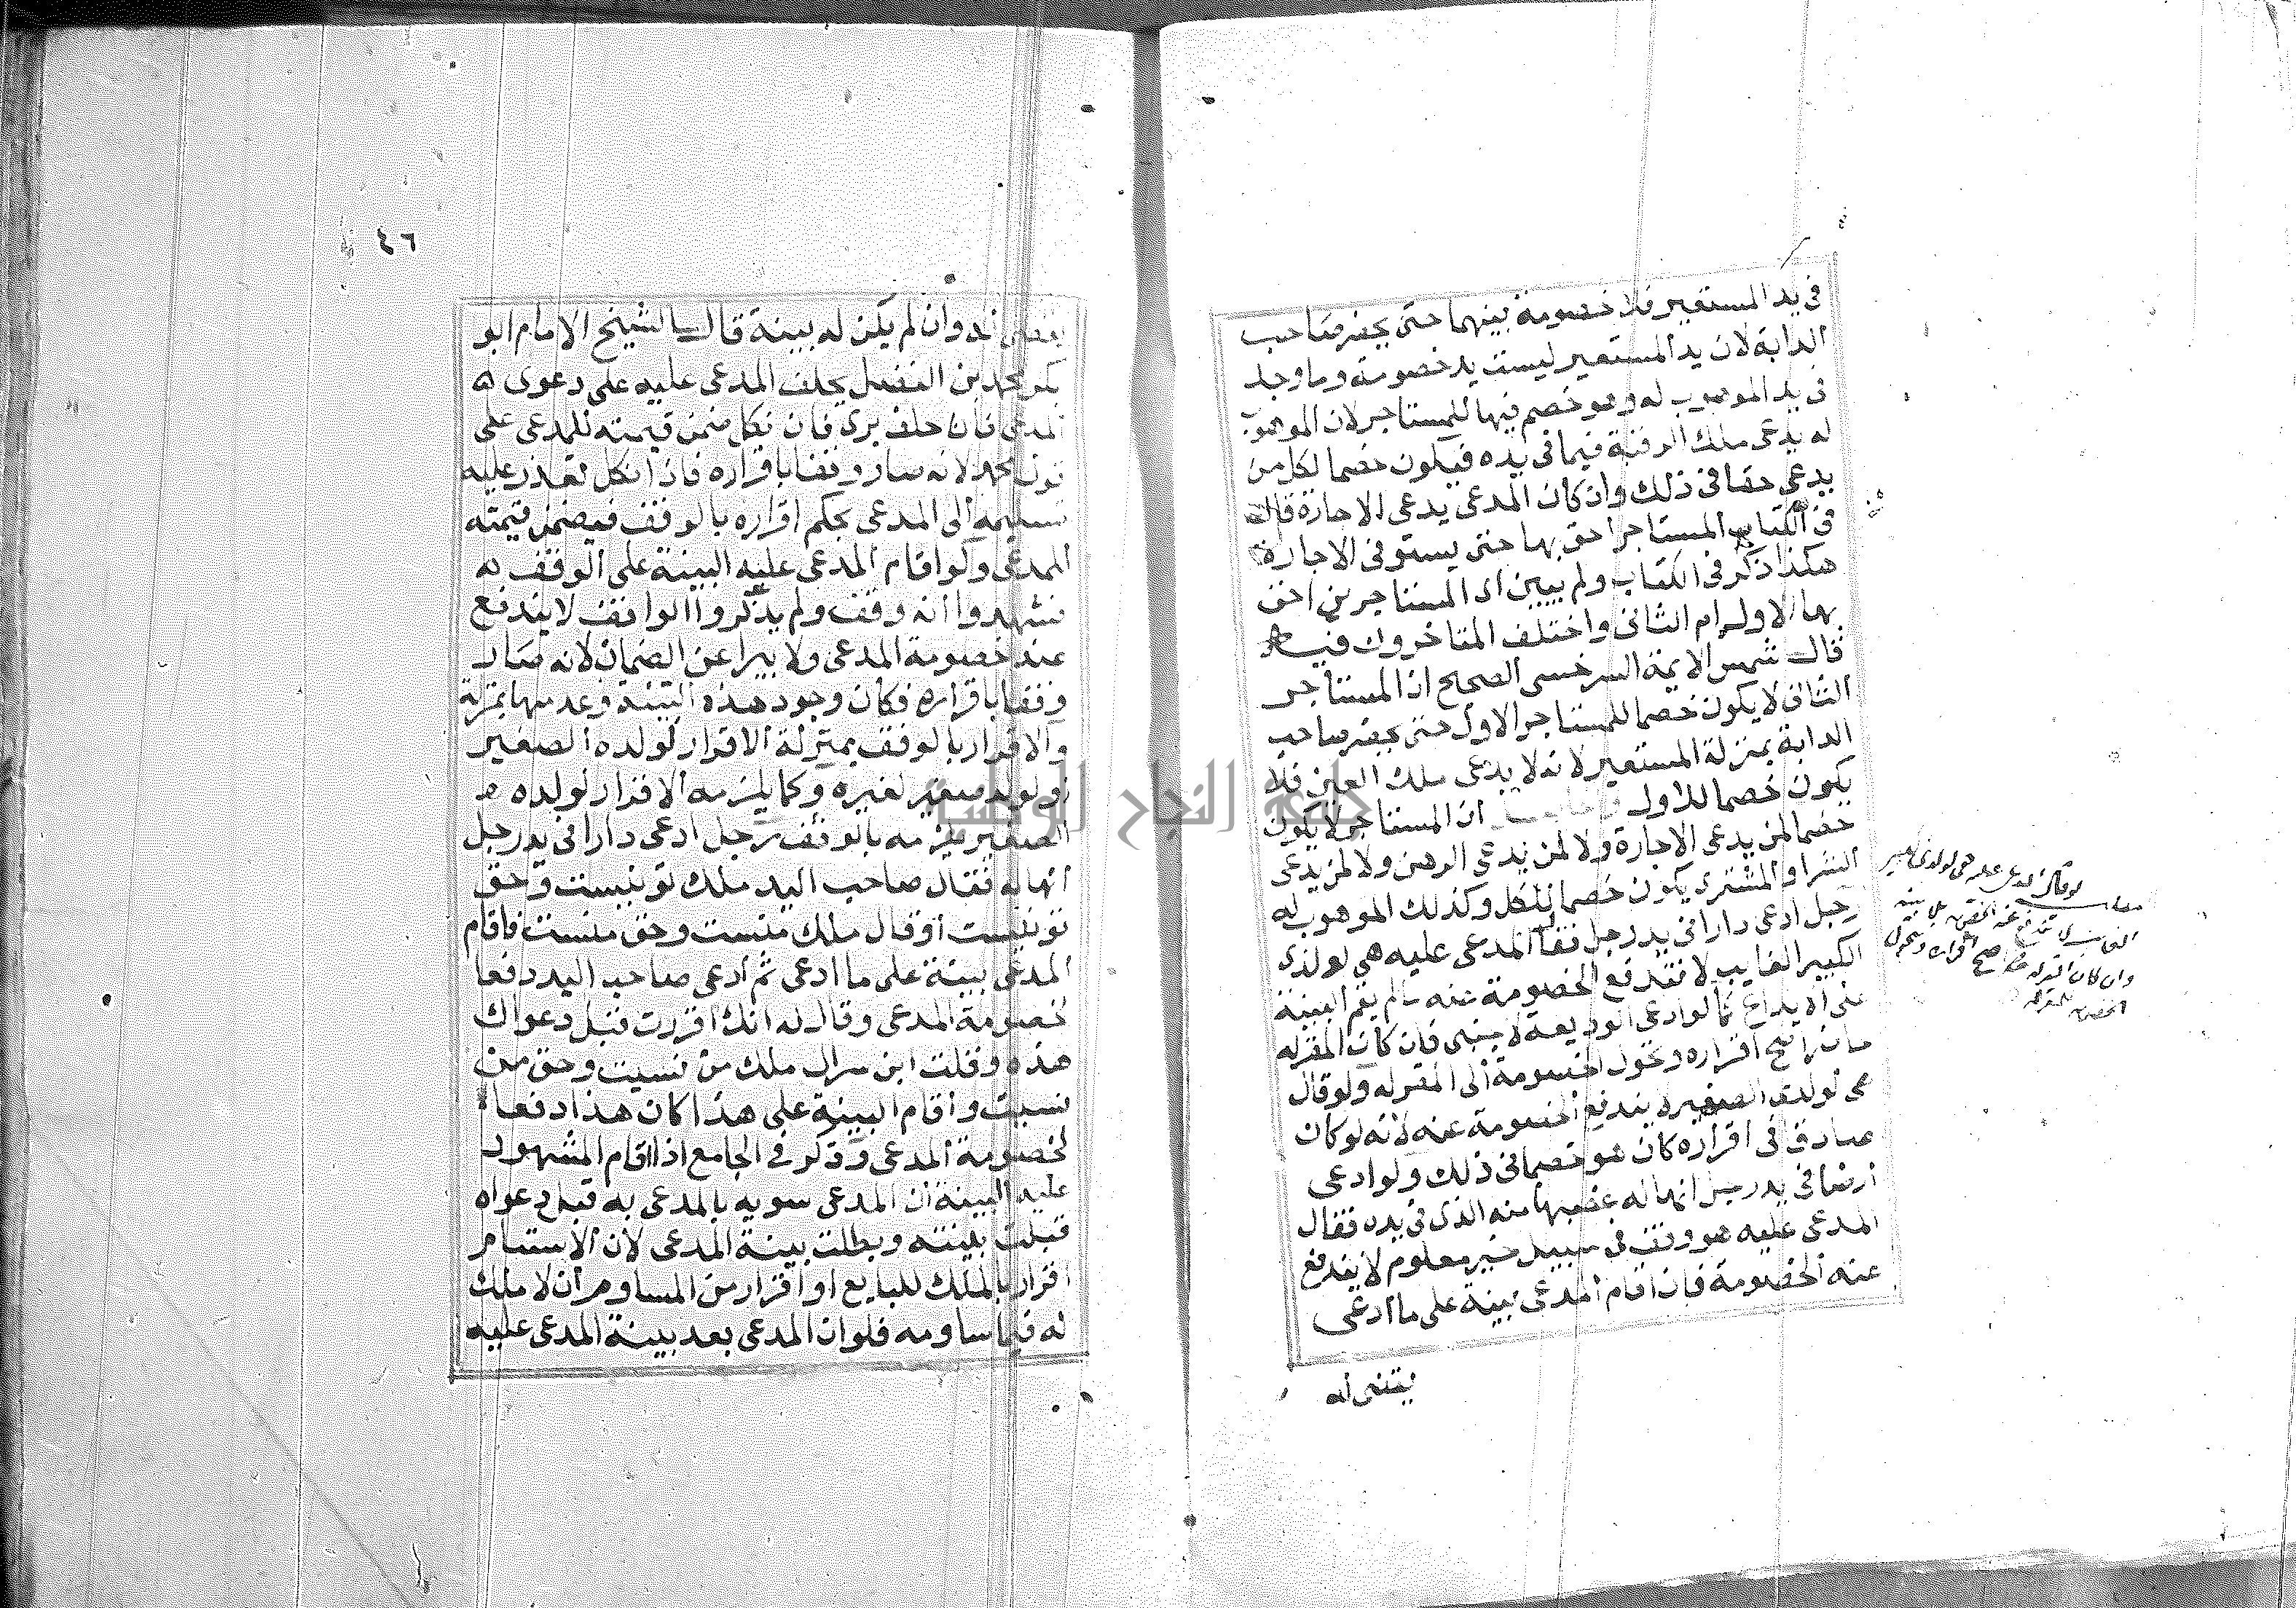 في يد المستعير فلا خصومة بينهما حتى يحضر صاحب
الدابة لان يد المستعير ليست يد خصومة وما وجد
في يد الموهوب له وهو خصم فيها للمستاجر لان الموهوب
له يدعى ملك الرقبة فيما في يده فيكون خصما لكل من
يدعي حقا في ذلك وان كان المدعى يدعى الاجارة قال
في الكتاب المستاجر احق بها حتى يستوفى الاجارة
هكذا ذكر في الكتاب ولم يبين اى المستاجرين احق
بها الاول ام الثانى واختلف المتاخرون فيه
قال شمس الايمة السرخسى الصحيح ان المستاجر
الثانى لا يكون خصما للمستاجر الاول حتى يحضر صاحب
الدابة بمنزلة المستعير لانه لا يدعى ملك العين فلا
يكون خصما للاول ان المستاجر لا يكون
خصما لمن يدعى الاجارة ولا لمن يدعي الرهن ولا لمن يدعى
الشرا والمشترى يكون خصما للكل وكذلك الموهوب له
رجل ادعى دارا فى يد رجل فقال المدعى عليه هي لولدى
الكبير الغايب لا تندفع الخصومة عنه مالم يقم البينة
على الايداع كما لو ادعى الوديعة لاجنبى فان كان المقر له
حاضرا صح اقراره وتحول الخصومة الى المقر له ولو قال
هى لولدى الصغير لا يندفع الخصومة عنه لانه لو كان
صادق فى اقراره كان هو خصما فى ذلك ولو ادعى
ارضا فى يد رجل انها له غصبها منه الذى في يده فقال
المدعى عليه هو وقف في سبيل خير معلوم لا يندفع
عنه الخصومة فان اقام المدعى بينة على ما ادعى
يقضى له
لو قال المدعى عليه هى لولدى الكبير
الغايب لا تندفع عنه الخصومة بلا بينة
وان كان المقر له صح اقراره وتحول
الخصومة للمقر له
٤٦
يقضى له وان لم يكن له بينة قال الشيخ الامام ابو
بكر محمد بن الفضل يحلف المدعى عليه على دعوى
المدعى فان حلف برى فان نكل ضمن قيمته للمدعى على
قول محمد لانه صار وقفا باقراره فاذا نكل تعذر عليه
تسليمه الى المدعى بحكم اقراره بالوقف فيضمن قيمته
للمدعى ولو اقام المدعى عليه البينة على الوقف
فشهدوا انه وقف ولم يذكروا الواقف لا يندفع
عند خصومة المدعى ولا يبرا عن الضمان لانه صار
وقفا باقراره فكان وجود هذه البينة وعدمها بمنزلة
والاقرار بالوقف بمنزلة الاقرار لولده الصغير
او لولد صغير لغيره وكما يلزمه الاقرار لولده
الصغير يلزمه بالوقف رجل ادعى دارا فى يد رجل
انها له فقال صاحب اليد ملك تو نيست وحق
تو نيست او قال ملك منست وحق منست فاقام
المدعى بينة على ما ادعى ثم ادعى صاحب اليد دفعا
لخصومة المدعى وقال له انك اقررت قبل دعواك
هذه وقلت اين سراى ملك من نسيت وحق من
نسيت واقام البينة على هذا كان هذا دفعا
لخصومة المدعى وذكر في الجامع اذا اقام المشهود
عليه البينة ان المدعى سومه بالمدعى به قبل دعواه
قبلت بينته وبطلت بينة المدعى لان الاستيام
اقرار بالملك للبايع او اقرار من المساوم ان لا ملك
له فيما ساومه فلو ان المدعى بعد بينة المدعى عليه
جامعة النجاح الوطنية